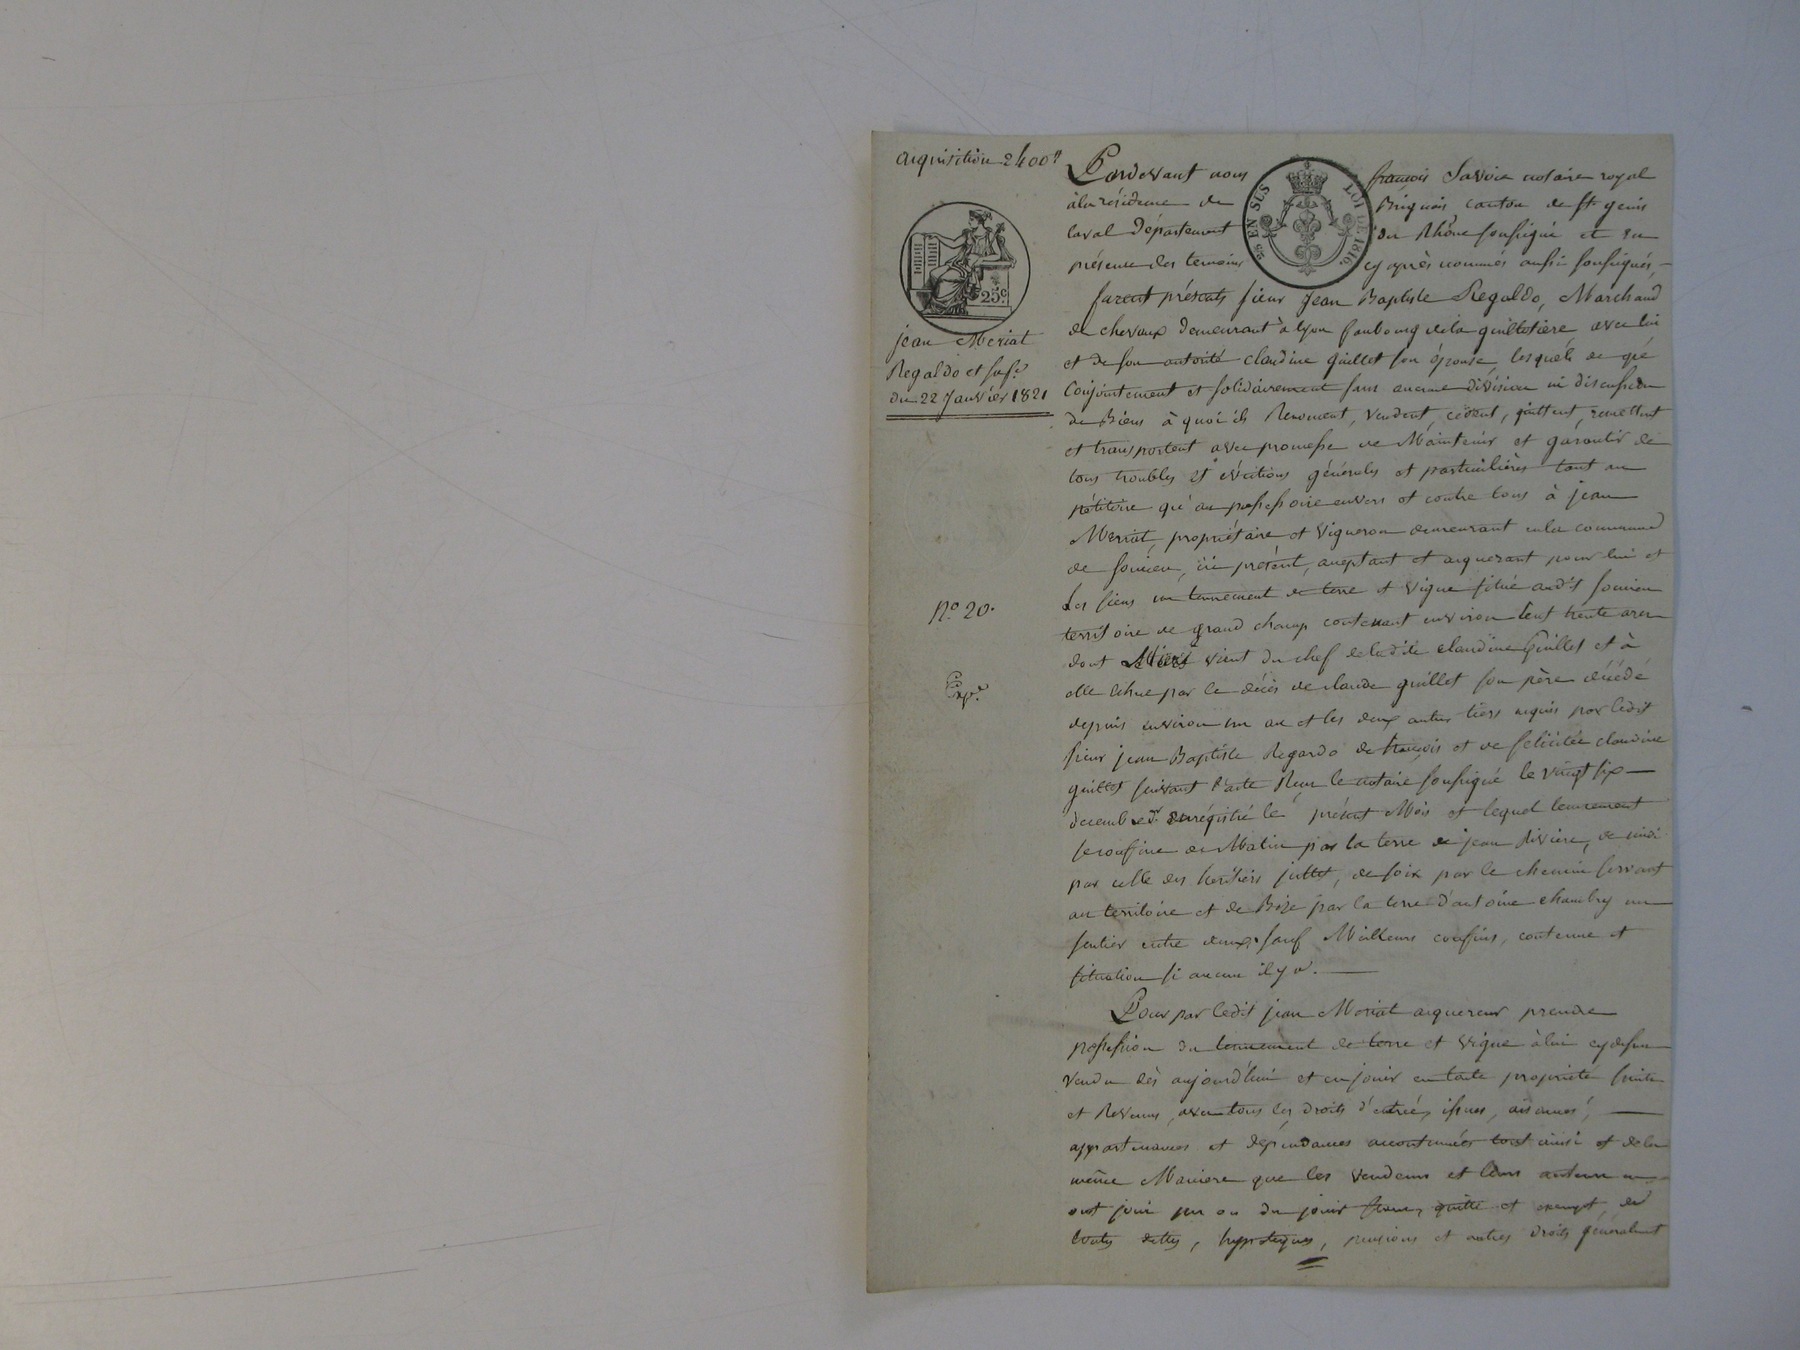 acquisition 2400 ff
25c
jean Meriat
Regaldo et sa fe
du 22 Janvier 1821
No. 20.
Exp.
EN SUS LOI DE 1816.
Pardevant nous françois Savoie notaire royal
à la résidence de Brignais canton de St genis
laval Département du Rhône soussigné et en
présence des temoins cy après nommés aussi soussignés,
furent présents sieur Jean Baptiste Regaldo, Marchand
de chevaux demeurant à lyon faubourg de la guillotière avec lui
et de son autorité claudine guillet son épouse, lesquels de gré
Conjointement et solidairement sans aucune division ni discussion
de Biens à quoi ils Renoncent, vendent, cèdent, quittent, remettent
et transportent avec promesse de Maintenir et garantir de
tous troubles et évictions générales et particulières tant au
pétitoire qu'au possessoire envers et contre tous à jean
Meriat, propriétaire et vigneron demeurant en la commune
de soucieu, ici présent, acceptant et acquerant pour lui et
les siens un tennement de terre et vigne situé audit soucieu
territoire de grand champ contenant environ cent trente ares
dont tiers vient du chef de ladite claudine Guillet et à
elle échue par le décès de claude guillet son père décédé
depuis environ un an et les deux autres tiers acquis par ledit
sieur jean Baptiste Regardo de françois et de felicitée claudine
guillet suivant l'acte Reçu le notaire soussigné le vingt six
decembre dr. enrégistré le présent Mois et lequel tennement
se confine de Matin par la terre de jean Rivière, de midi
par celle des heritiers juttet, de soir par le chemin servant
au territoire et de Bize par la terre d'antoine chambry un
sentier entre deux, sauf Meilleurs confins, contenue et
situation si aucun il y a.
Pour par ledit jean Meriat acquereur prendre
possession du tennement de terre et vigne à lui cy dessus
vendu dès aujourd'hui et en jouir en toute propriété fruits
et Revenus, avec tous les droits d'entrée, issues, aisances,
appartenances et dépendances accoutumées tout ainsi et de la
même Maniere que les vendeurs et leurs auteurs en
ont joui pu ou du jouir franc, quitte et exempt de
toutes dettes, hyppoteques, pensions et autres droits généralement